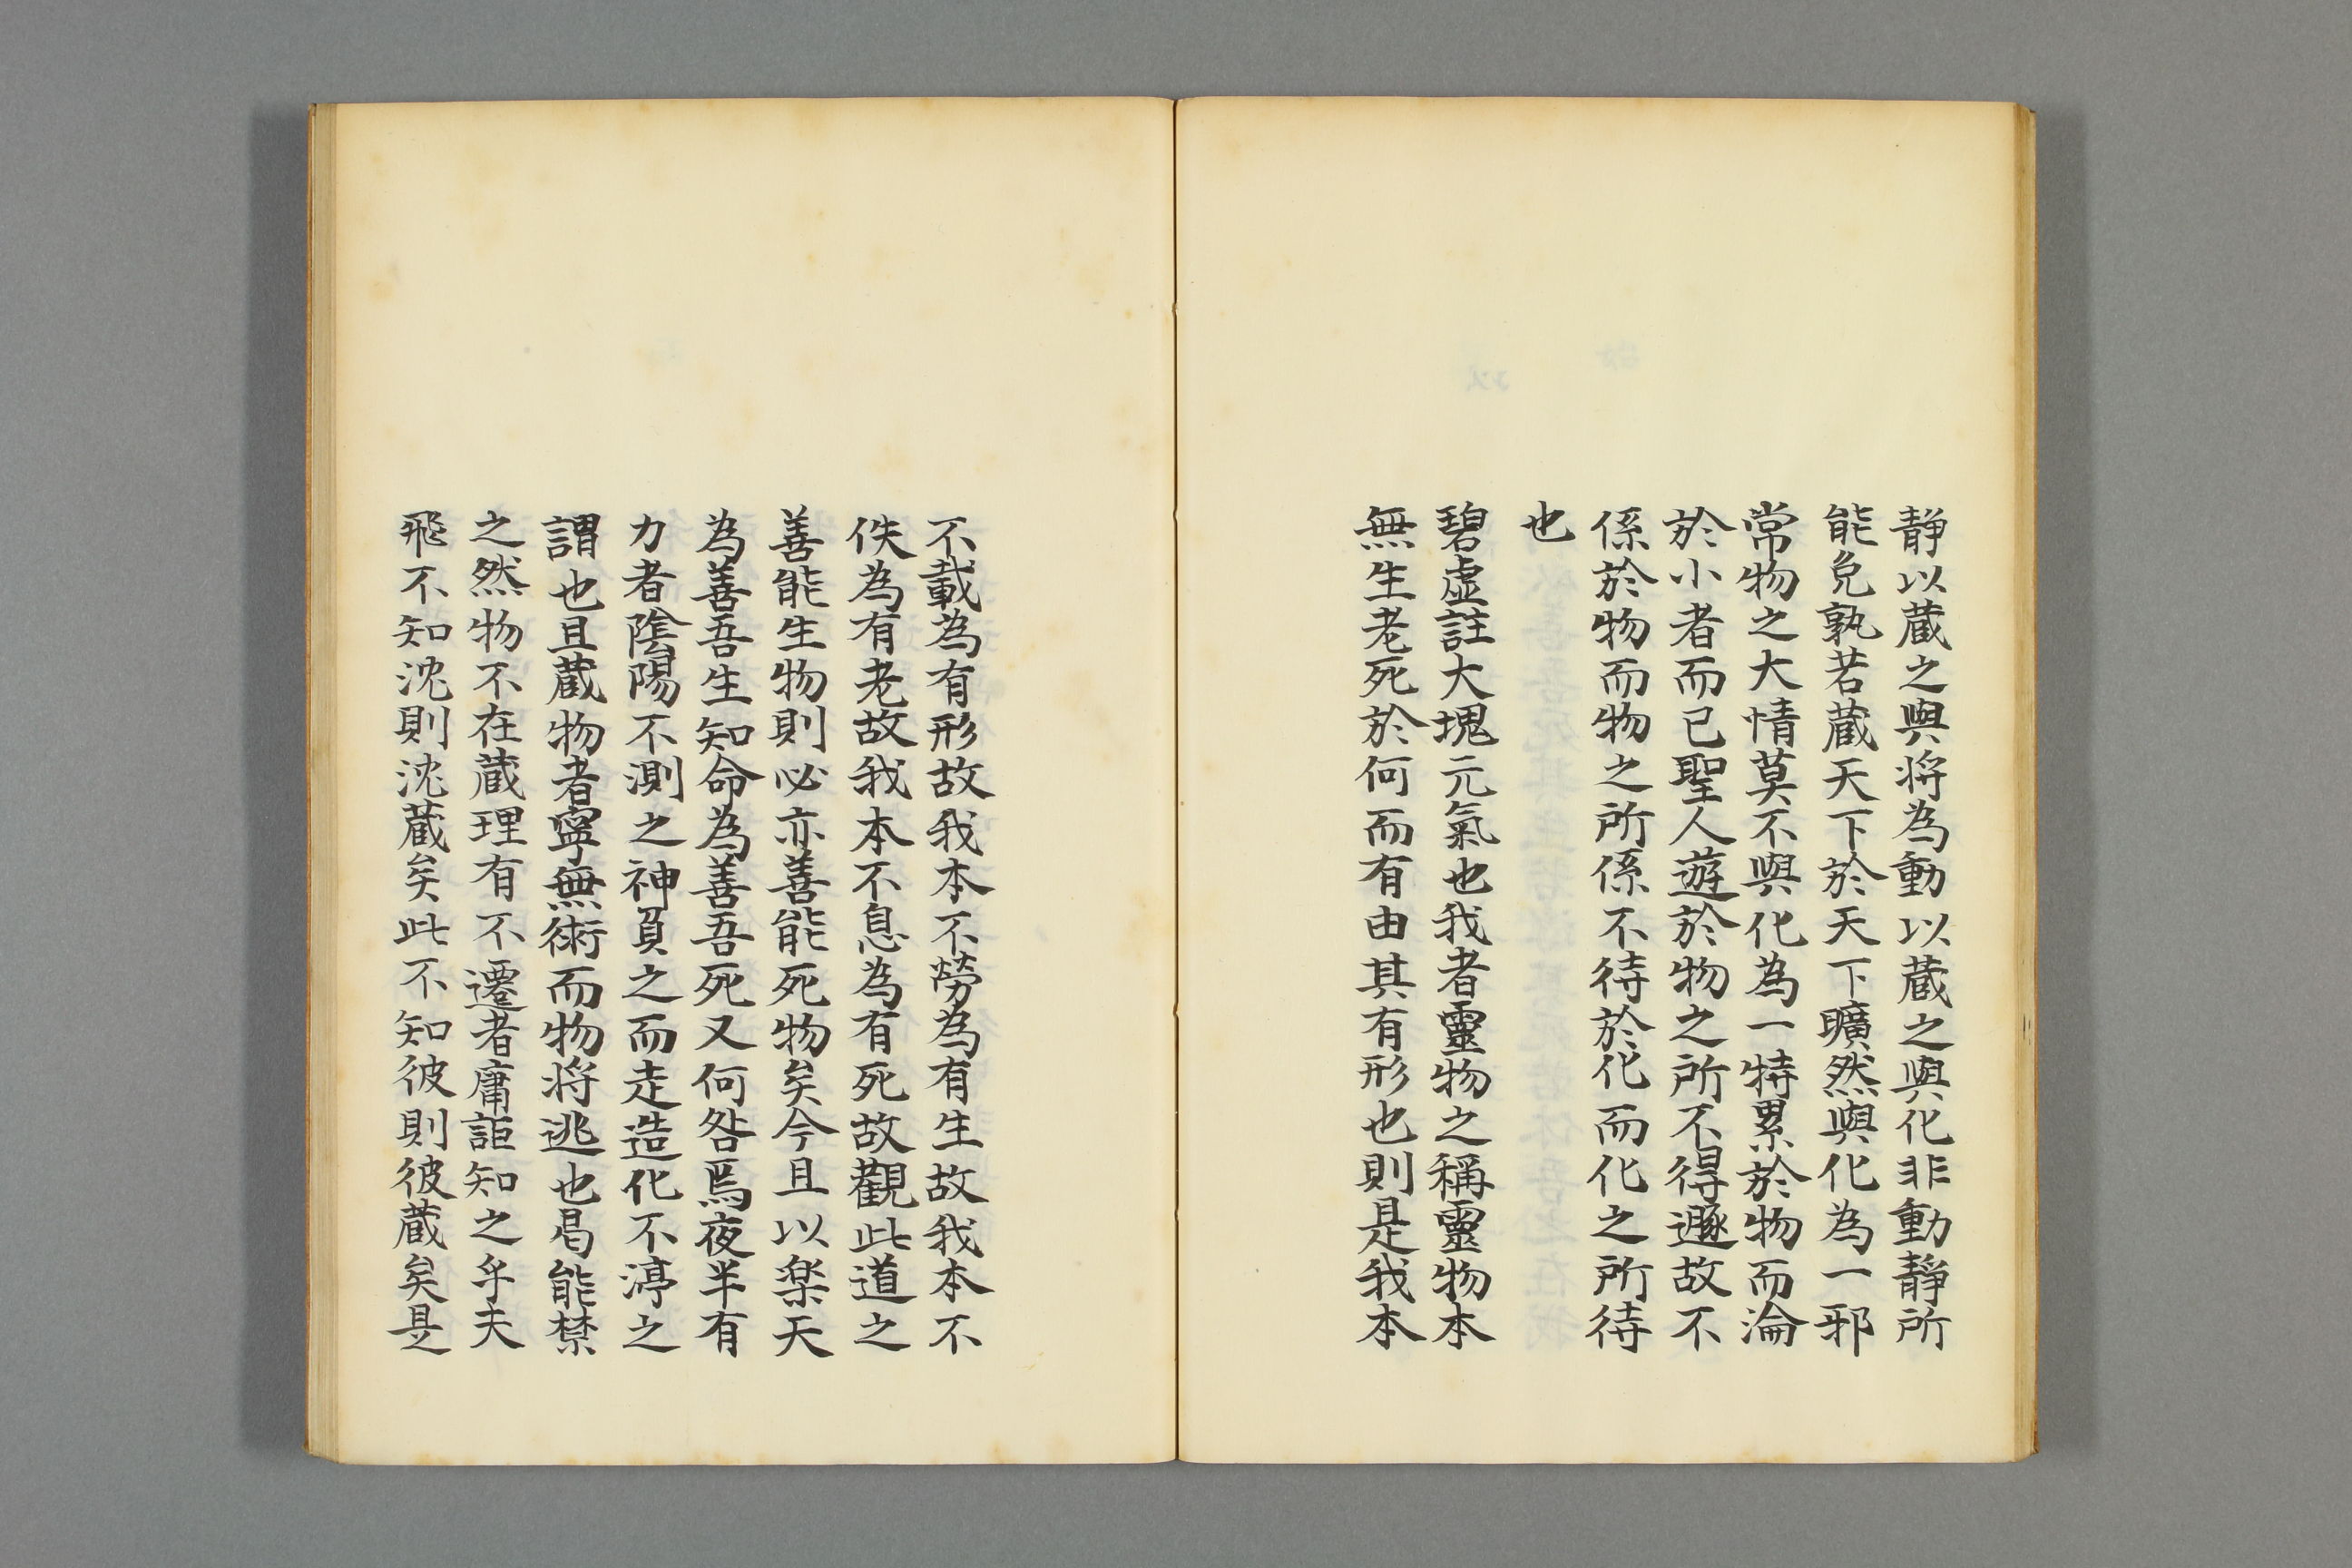 静以蔵之與将為動以蔵之與化非動靜所
能免孰若蔵天下於天下曠然與化為一邪
常物之大情莫不與化為一特累於物而淪
於小者而已聖人遊於物之所不得遯故不
係於物而物之所係不待於化而化之所待
也
碧虚註大塊元氣也我者靈物之稱靈物本
無生老死於何而有由其有形也則是我本
不載為有形故我本不勞為有生故我本不
佚為有老故我本不息為有死故觀此道之
善能生物則必亦善能死物矣今且以楽天
為善吾生知命為善吾死又何咎焉夜半有
力者陰陽不測之神負之而走造化不渟之
謂也且蔵物者寧無術而物将逃也曷能禁
之然物不在蔵理有不遷者庸詎知之乎夫
飛不知沈則沈蔵矣此不知彼則彼蔵矣是